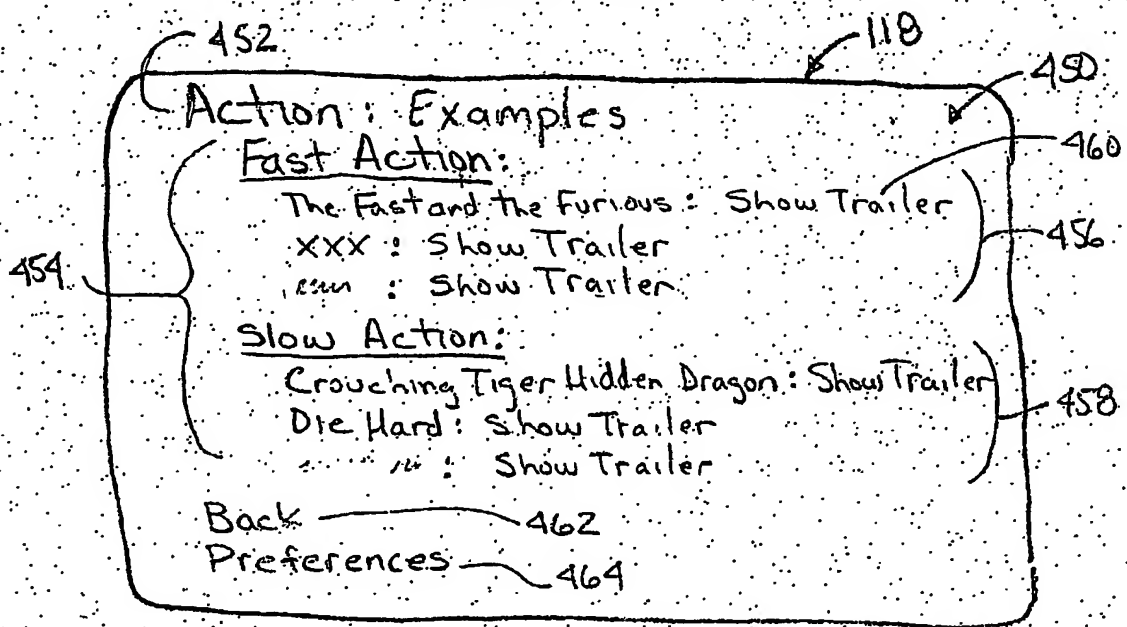 452
118
450
Action: Examples
Fast Action:
460
The Fast and the Furious: Show Trailer
XXX: Show Trailer
456
454
: Show Trailer
Slow Action:
Crouching Tiger Hidden Dragon: Show Trailer
458
Die Hard: Show Trailer
: Show Trailer
Back 462
Preferences 464